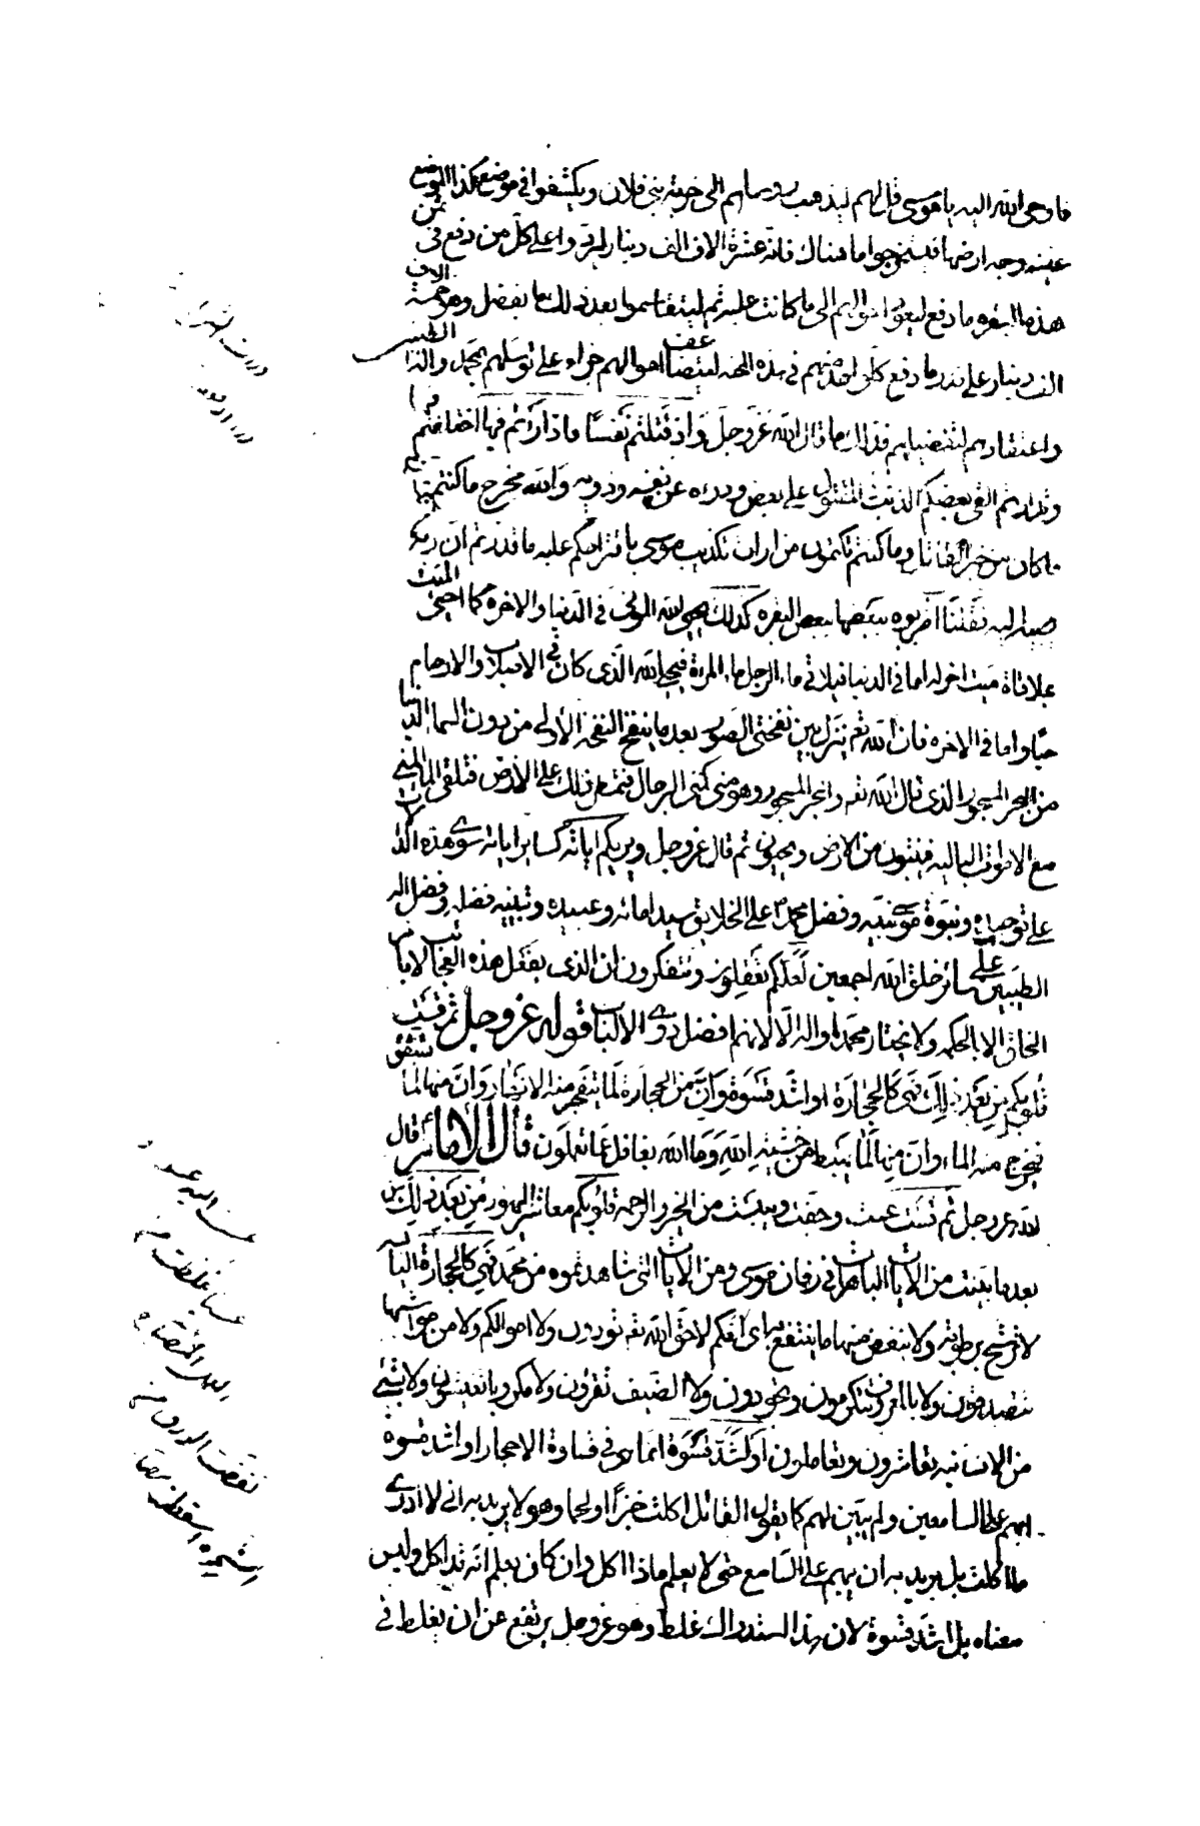 فاوحى الله اليه يا موسى قل لهم ليذهب رؤساهم الى خربة بنى فلان ويكشفوا فى موضع كذا لموضع
عينه وجه ارضها فيستخرجوا ما هناك فانه عشرة الاف الف دينار ليردوا على كل من دفع فى ثمن
هذه البقره ما دفع ليعود احوالهم الى ما كانت عليه ثم ليتقاسموا بعد ذلك ما يفضل وهو خمسة الاف
الف دينار على قدر ما دفع كل واحد منهم فى هذه المحنه لتتضاعف اموالهم جزاء على توسلهم بمحمد واله الطيبين
واعتقادهم لتفضيلهم فذلك ما قال الله عز وجل وَاِذ قَتَلتُم نَفسًا فادّارَأتم فيها اختلفتم
وتدارئتم القى بعضكم الذنب فى قتل المقتول على بعض ودرءه عن نفسه وذويه وَاللّه مخرج ما كنتم تكتمون
ما كان من خبر القاتل وما كنتم تكتمون من اراده تكذيب موسى باقتراحكم عليه ما قدرتم ان ربه لا
يجيبه اليه فقلنا اضربوه ببعضها ببعض البقره كذلك يحيى الله الموتى فى الدنيا والاخره كما احيى الميت
بملاقاة ميت اخر له اما فى الدنيا فيلاقى ماء الرجل ماء المرءة فيحيى الله الذى كان فى الاصلاب والارحام
حيّا واما فى الاخره فان الله تع ينزل بين نفختى الصور بعد ما ينفخ النفخه الاولى من دون السماء الدنيا
من البحر المسجور الذى قال الله تع والبحر المسجور وهو منى كمنى الرجال فتمطر ذلك على الارض فتلقى الماء المنى
مع الاموات الباليه فينبتون من الارض ويحيون ثم قال عز وجل ويريكم اياته كسائر اياته سوى هذه الدلالات
على توحيده ونبوة موسى نبيه وفضل محمد ص على الخلايق سيد امائه وعبيده وتبيينه فضله وفضل اله
الطيبين على سائر خلق الله اجمعين لَعلّكم تَعقِلون وتتفكرون ان الذى يفعل هذه العجايب لا يامر
الخلق الا بالحكمه ولا يختار محمدا واله الّا لانهم افضل ذوى الالباب قوله عز وجل ثم قسَت
قُلوبكم مِن بَعد ذلِكَ فَهىَ كَالحِجارَة او اشَدّ قسوَة وَانّ مِنَ الحِجارَة لَما يتفجّر منه الانهار وَانّ منها لَما يشّقّق
فيخرج منه الماء وانّ منها لما يهبط من خشيةِ اللهِ وَما الله بغافل عَمّا تعمَلون قال الامام ع قال
الله عز وجل ثم قسَت عست وجفت ويبست من الخير والرحمه قلوبكم معاشر اليهود مِن بَعد ذلك من
بعد ما بينت من الايات الباهرات فى زمان موسى ومن الايات التى شاهدتموه من محمد فهى كالحجارة اليابسه
لا ترشح برطوبه ولا ينتفض منها ما ينتفع به اى انكم لا حق الله تع تؤدون ولا اموالكم ولا من مواشيها
تتصدقون ولا بالمعروف تتكرمون وتجودون ولا الضيف تقرؤن ولا مكروبا تغيثون ولا بشئ
من الانسانيه تعاشرون وتعاملون اَو اشَدّ قَسوَة انما هى فى قساوة الاحجار او اشد قسوة
ابهم على السامعين ولم يبين لهم كما يقول القائل اكلت خبزًا او لحما وهو لا يريد به انى لا ادرى
ما اكلت بل يريد به ان يبهم على السامع حتى لا يعلم ماذا اكل وان كان يعلم انه قد اكل وليس
معناه بل اشد قسوة لان هذا استدراك غلط وهو عز وجل يرتفع عن ان يغلط فى